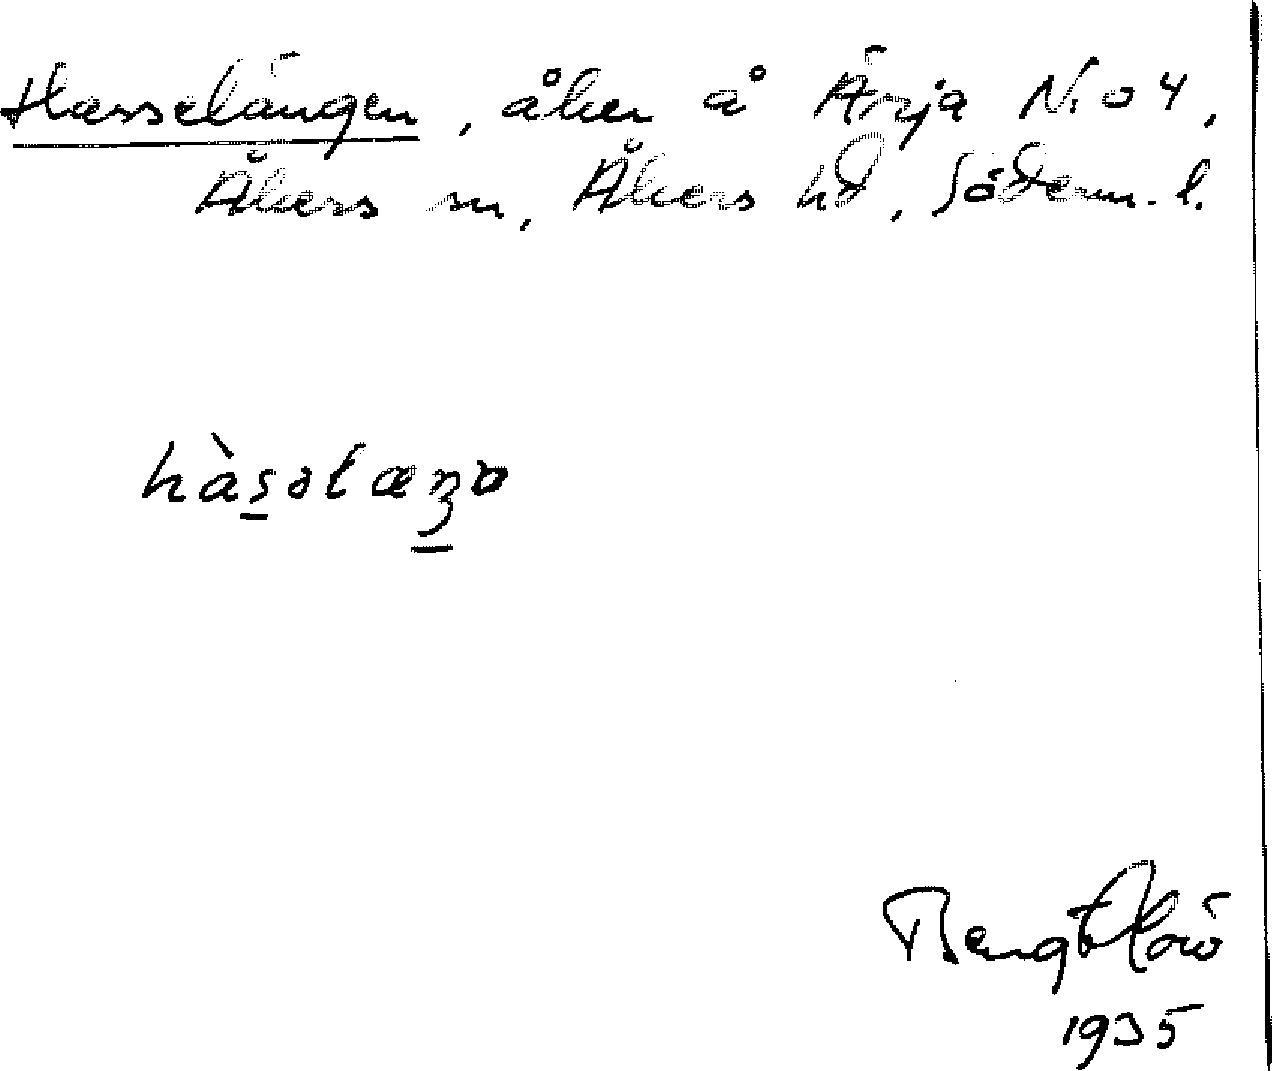 Hasselängen, åker å Ärja N. o 4,
Åkers sn, Åkers hd, Söderm. l.
hàs̲əlæŋ̲a
Bengt
1935